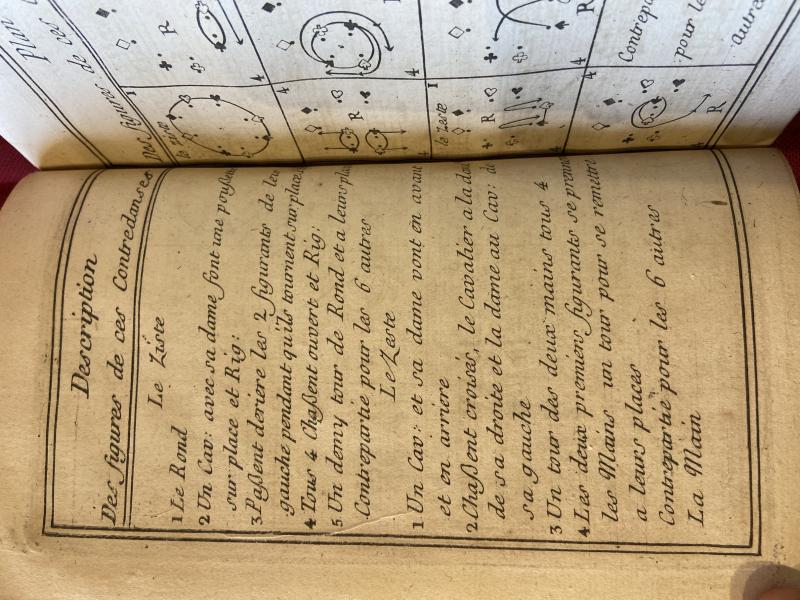 Description
Des figures de ces Contredanses
Le Ziste
1 Le Rond
2 Un Cav: avec sa dame font une
sur place et Rig:
3 Paßent deriere les 2 figurants de
gauche pendent qu'ils tournent sur place
4 Tous 4 Chaßent ouvert et Rig:
5 Un demy tour de Rond et a leurs
Contrepartie pour les 6 autres
Le Zeste
1 Un Cav: et sa dame vont en avant
et en arriere
2 Chaßent croisés, le Cavalier a la
de sa droite et la dame au Cav: de
sa gauche
3 Un tour des deux mains tous 4
4 Les deux premiers figurants se
les Mains un tour pour se remettre
a leurs places
Contrepartie pour les 6 autres
La Main
Plan
Des figures de ces
1
le ziste
R
4
R
4
4
R
1
le zeste
R
4
4
R
Contrep
pour le
Autre